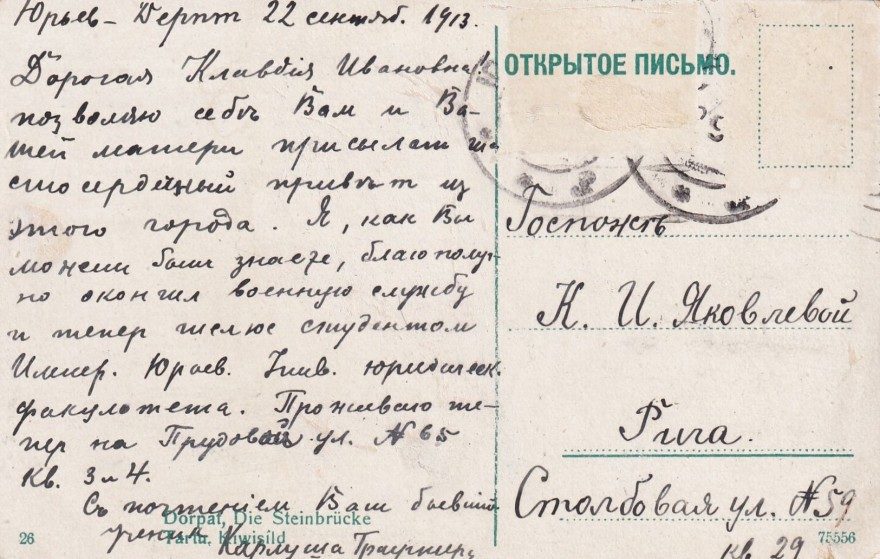 Юрьев - Дерпт 22 сентяб. 1913.
Дорогая Клавдія Ивановна!
позволяю себѣ Вам и Ва-
шей матери присылат чи-
стосердечный привѣт из
этого города. Я, как Вы
может быт знаете, благополуч-
но окончил военную службу
и тепер числюс студентом
Импер. Юрьев. Унив. юридическ.
факультета. Проживаю те-
пер на Прудовой ул. № 65
кв. 3 и 4.
Съ почтеніем Ваш бывший
ученик Карлуша
ОТКРЫТОЕ ПИСЬМО.
Госпожѣ
К. И. Яковлевой
Рига.
Столбовая ул. № 59
кв. 29
Dorpat, Die Steinbrücke
Tartu, Kiwisild
26
75556